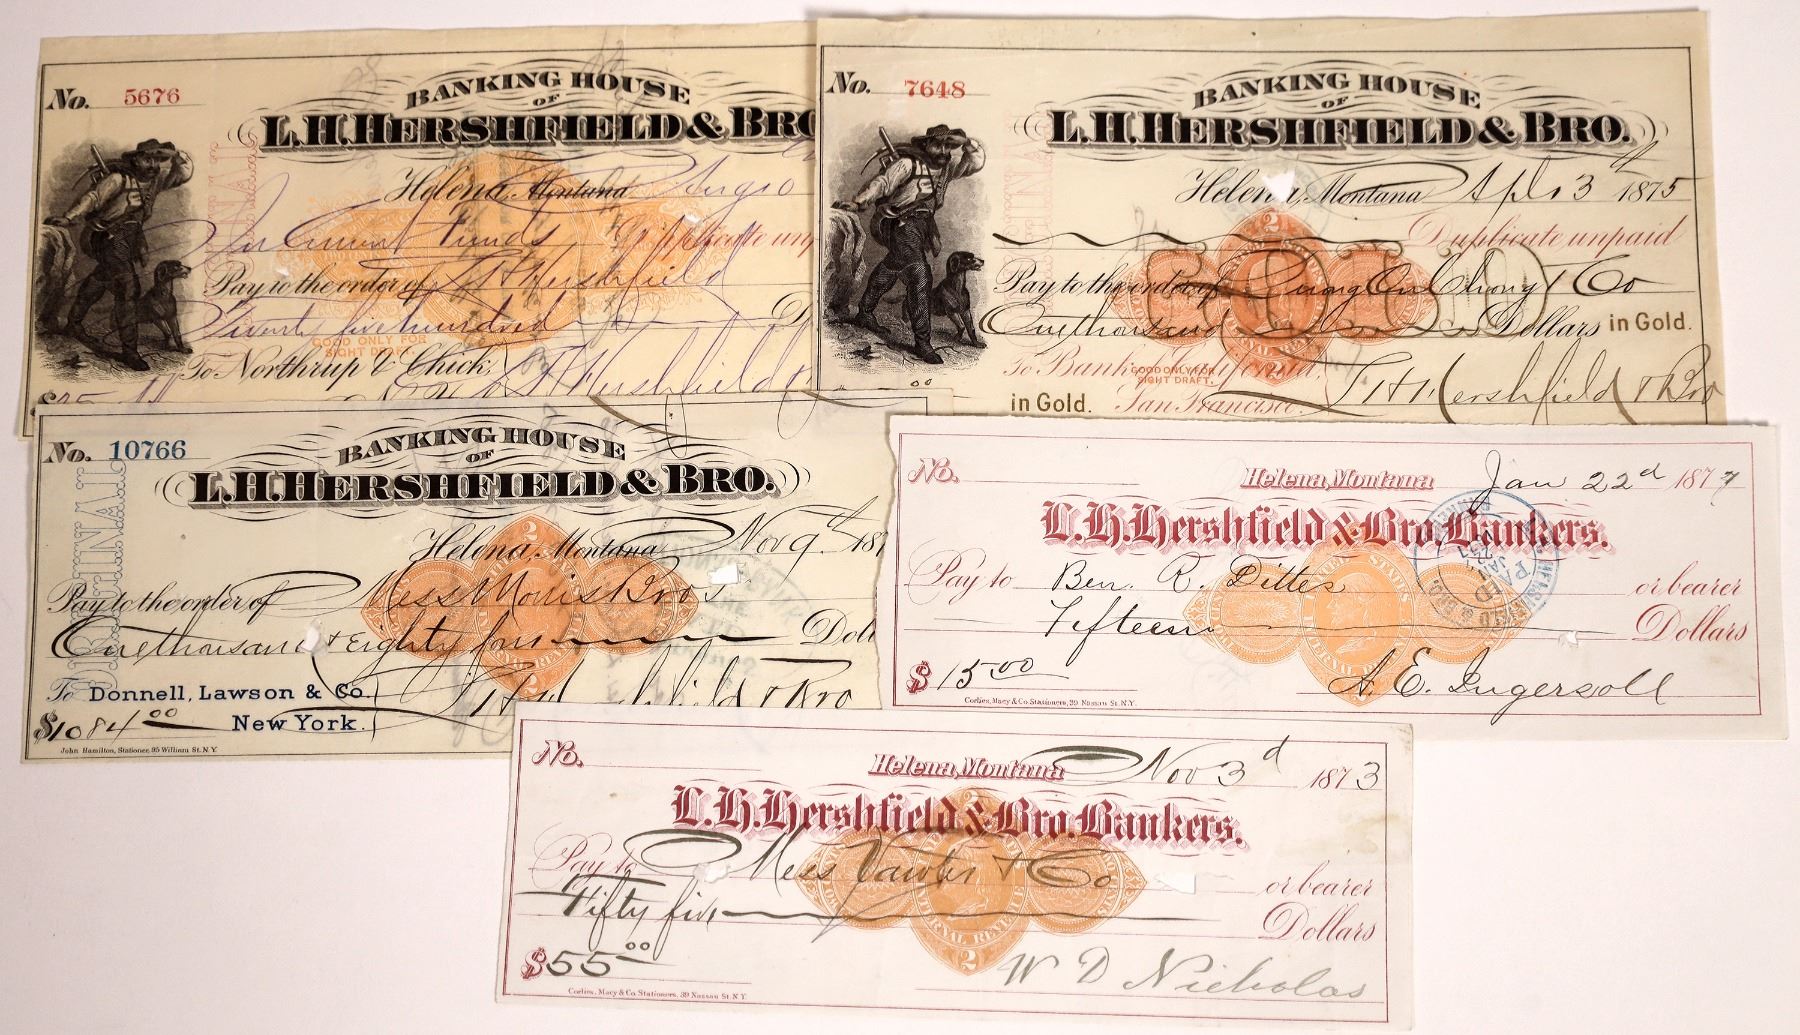 No. 5676
BANKING HOUSE
OF
L.H. HERSHFIELD & BRO
Helena, Montana Aug 10
ORIGINAL
In Current Funds Duplicate unp
Pay to the order of L H Hershfield
Twenty five hundred D
GOOD ONLY FOR
SIGHT DRAFT.
To Northrup & Chick,
L H Hershfield &
No. 7648
BANKING HOUSE
OF
L.H. HERSHFIELD & BRO.
Helena, Montana Apl 3 1875
ORIGINAL
Duplicate unpaid
Pay to the order of Quong On Chong & Co
One thousand Dollars in Gold.
To Bank California,
GOOD ONLY FOR
SIGHT DRAFT.
in Gold. San Francisco.
L H Hershfield & Bro
No. 10766
BANKING HOUSE
OF
L.H. HERSHFIELD & BRO.
Helena, Montana Nov 9th 187
ORIGINAL
Pay to the order of Mess Morris Bros
One thousand & Eighty four Doll
To Donnell, Lawson & Co.
$1084.00 New York.
L H Hershfield & Bro
John Hamilton, Stationer, 95 William St. N.Y.
No. Helena, Montana Jan 22d 1877
L. H. Hershfield & Bro. Bankers.
Pay to Ben. R. Dittes or bearer
Fifteen Dollars
$15.00 A. E. Ingersoll
Corlies, Macy & Co. Stationers, 39 Nassau St. N.Y.
PAID
JAN
No. Helena, Montana Nov 3d 1873
L. H. Hershfield & Bro. Bankers.
Pay to Mess Vawter & Co or bearer
Fifty five Dollars
$55.00 W D Nicholas
Corlies, Macy & Co. Stationers, 39 Nassau St. N.Y.